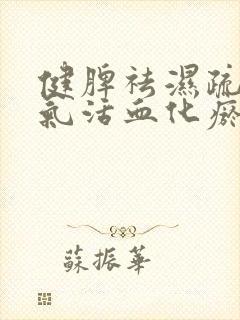 健脾祛濕疏
氣活血化瘀
蘇振華